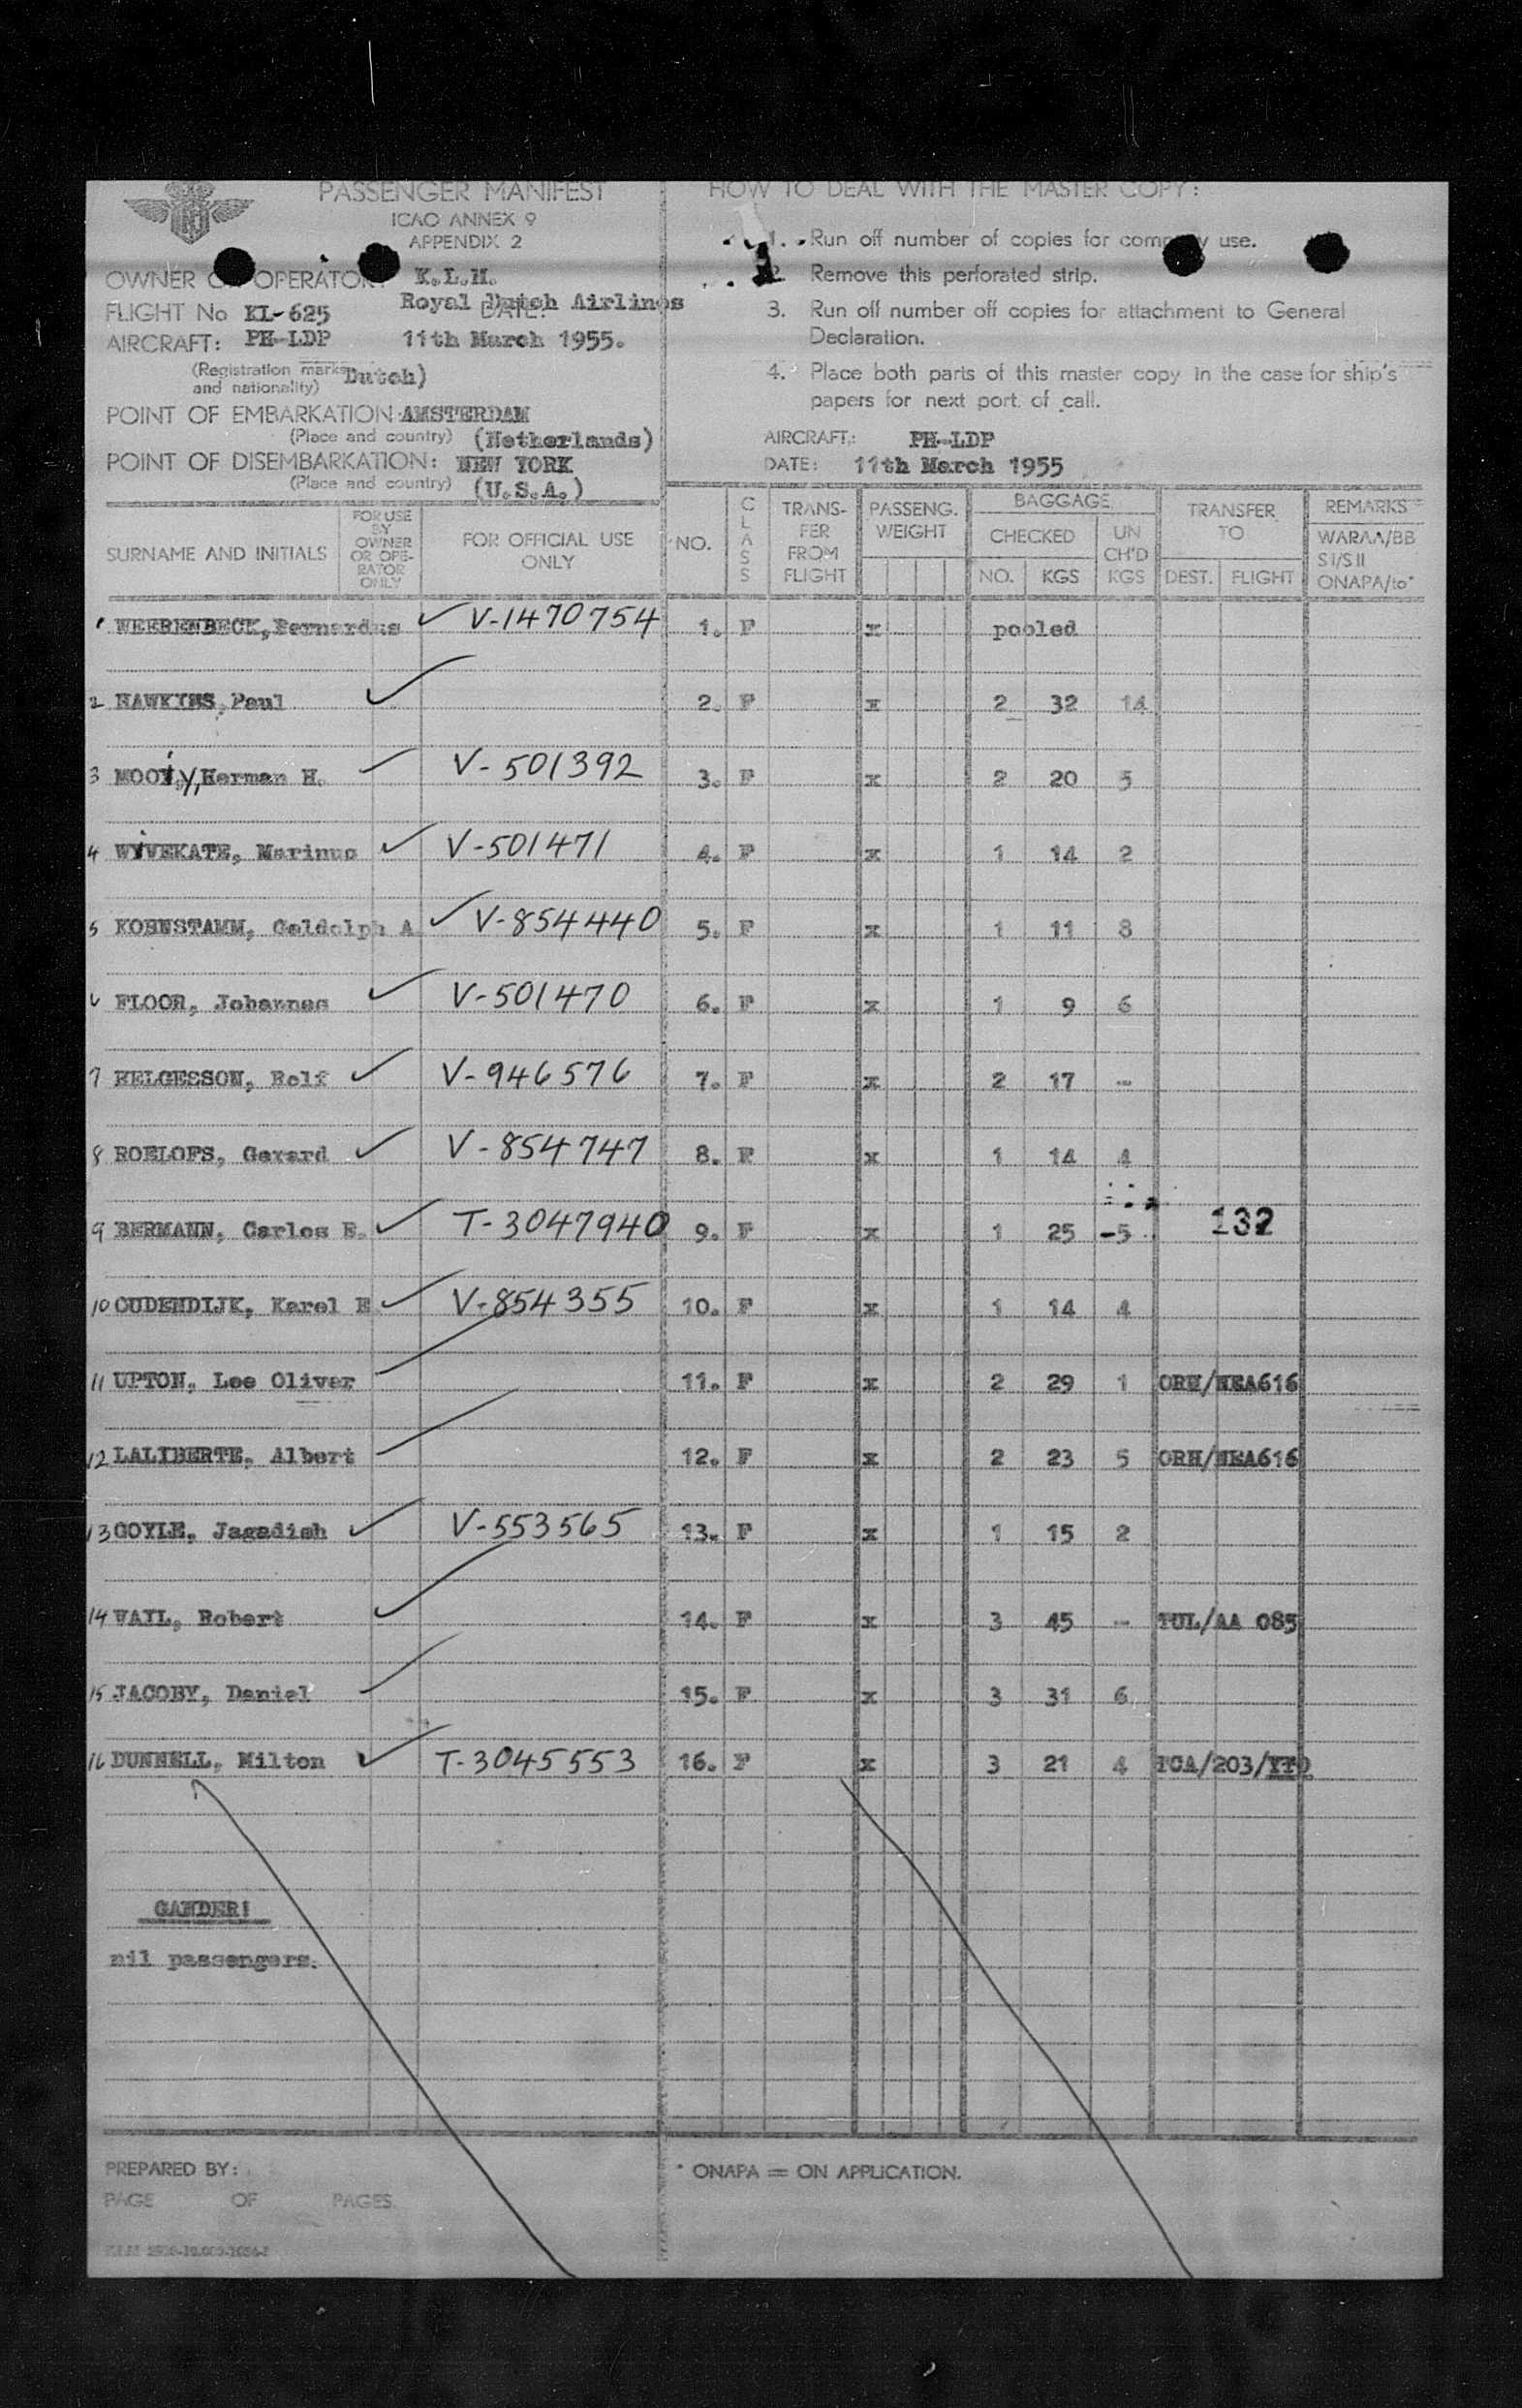 PASSENGER MANIFEST
ICAO ANNEX 9
APPENDIX 2
OWNER OPERATOR: K.L.M.
Royal Dutch Airlines
FLIGHT No KL-625 DATE:
AIRCRAFT: PH-LDP 11th March 1955.
(Registration marks Dutch)
and nationality)
POINT OF EMBARKATION: AMSTERDAM
(Place and country) (Netherlands)
POINT OF DISEMBARKATION: NEW YORK
(Place and country) (U.S.A.)
HOW TO DEAL WITH THE MASTER COPY:
1. Run off number of copies for company use.
2. Remove this perforated strip.
3. Run off number off copies for attachment to General
Declaration.
4. Place both parts of this master copy in the case for ship's
papers for next port of call.
AIRCRAFT: PH-LDP
DATE: 11th March 1955
SURNAME AND INITIALS FOR USE BY OWNER OR OPERATOR ONLY FOR OFFICIAL USE ONLY NO. CLASS TRANSFER FROM FLIGHT PASSENG. WEIGHT BAGGAGE CHECKED NO. KGS UN CH'D KGS TRANSFER TO DEST. FLIGHT REMARKS WARAA/BB S I/S II ONAPA/to*
WEERENBECK, Bernardus V-1470754 1. F x pooled
2 HAWKINS, Paul 2. F x 2 32 14
3 MOOY, Herman H. V-501392 3. F x 2 20 5
4 WYVEKATE, Marinus V-501471 4. F x 1 14 2
5 KOHNSTAMM, Geldolph A V-854440 5. F x 1 11 8
6 FLOOR, Johannes V-501470 6. F x 1 9 6
7 HELGESSON, Rolf V-946576 7. F x 2 17 -
8 ROELOFS, Gerard V-854747 8. F x 1 14 4
9 BERMANN, Carlos E. T-3047940 9. F x 1 25 -5 132
10 OUDENDIJK, Karel E V-854355 10. F x 1 14 4
11 UPTON, Lee Oliver 11. F x 2 29 1 ORH/NEA616
12 LALIBERTE, Albert 12. F x 2 23 5 ORH/NEA616
13 GOYLE, Jagadish V-553565 13. F x 1 15 2
14 VAIL, Robert 14. F x 3 45 - TUL/AA 085
15 JACOBY, Daniel 15. F x 3 31 6
16 DUNNELL, Milton T-3045553 16. F x 3 21 4 TCA/203/YTO
GANDER!
nil passengers.
PREPARED BY:
PAGE OF PAGES
* ONAPA = ON APPLICATION.